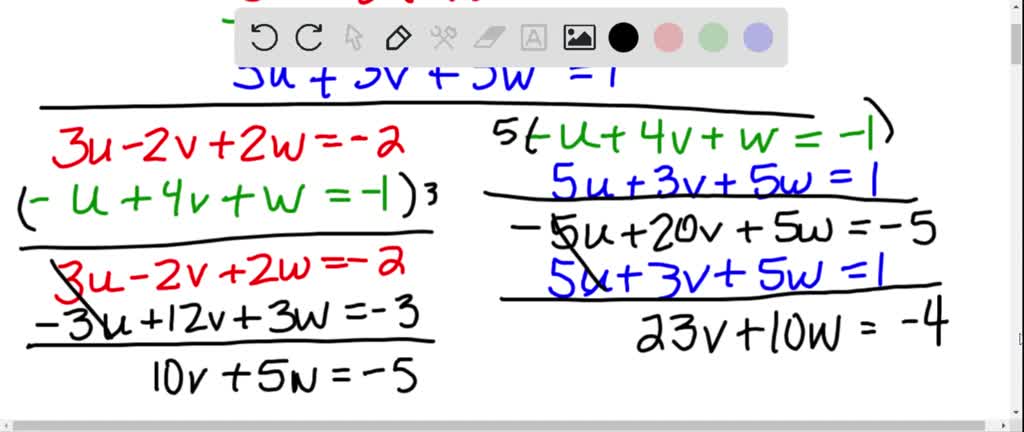 5u + 3v + 5w = 1
3u - 2v + 2w = -2
(-u + 4v + w = -1)3
3u - 2v + 2w = -2
-3u + 12v + 3w = -3
10v + 5w = -5
5(-u + 4v + w = -1)
5u + 3v + 5w = 1
-5u + 20v + 5w = -5
5u + 3v + 5w = 1
23v + 10w = -4